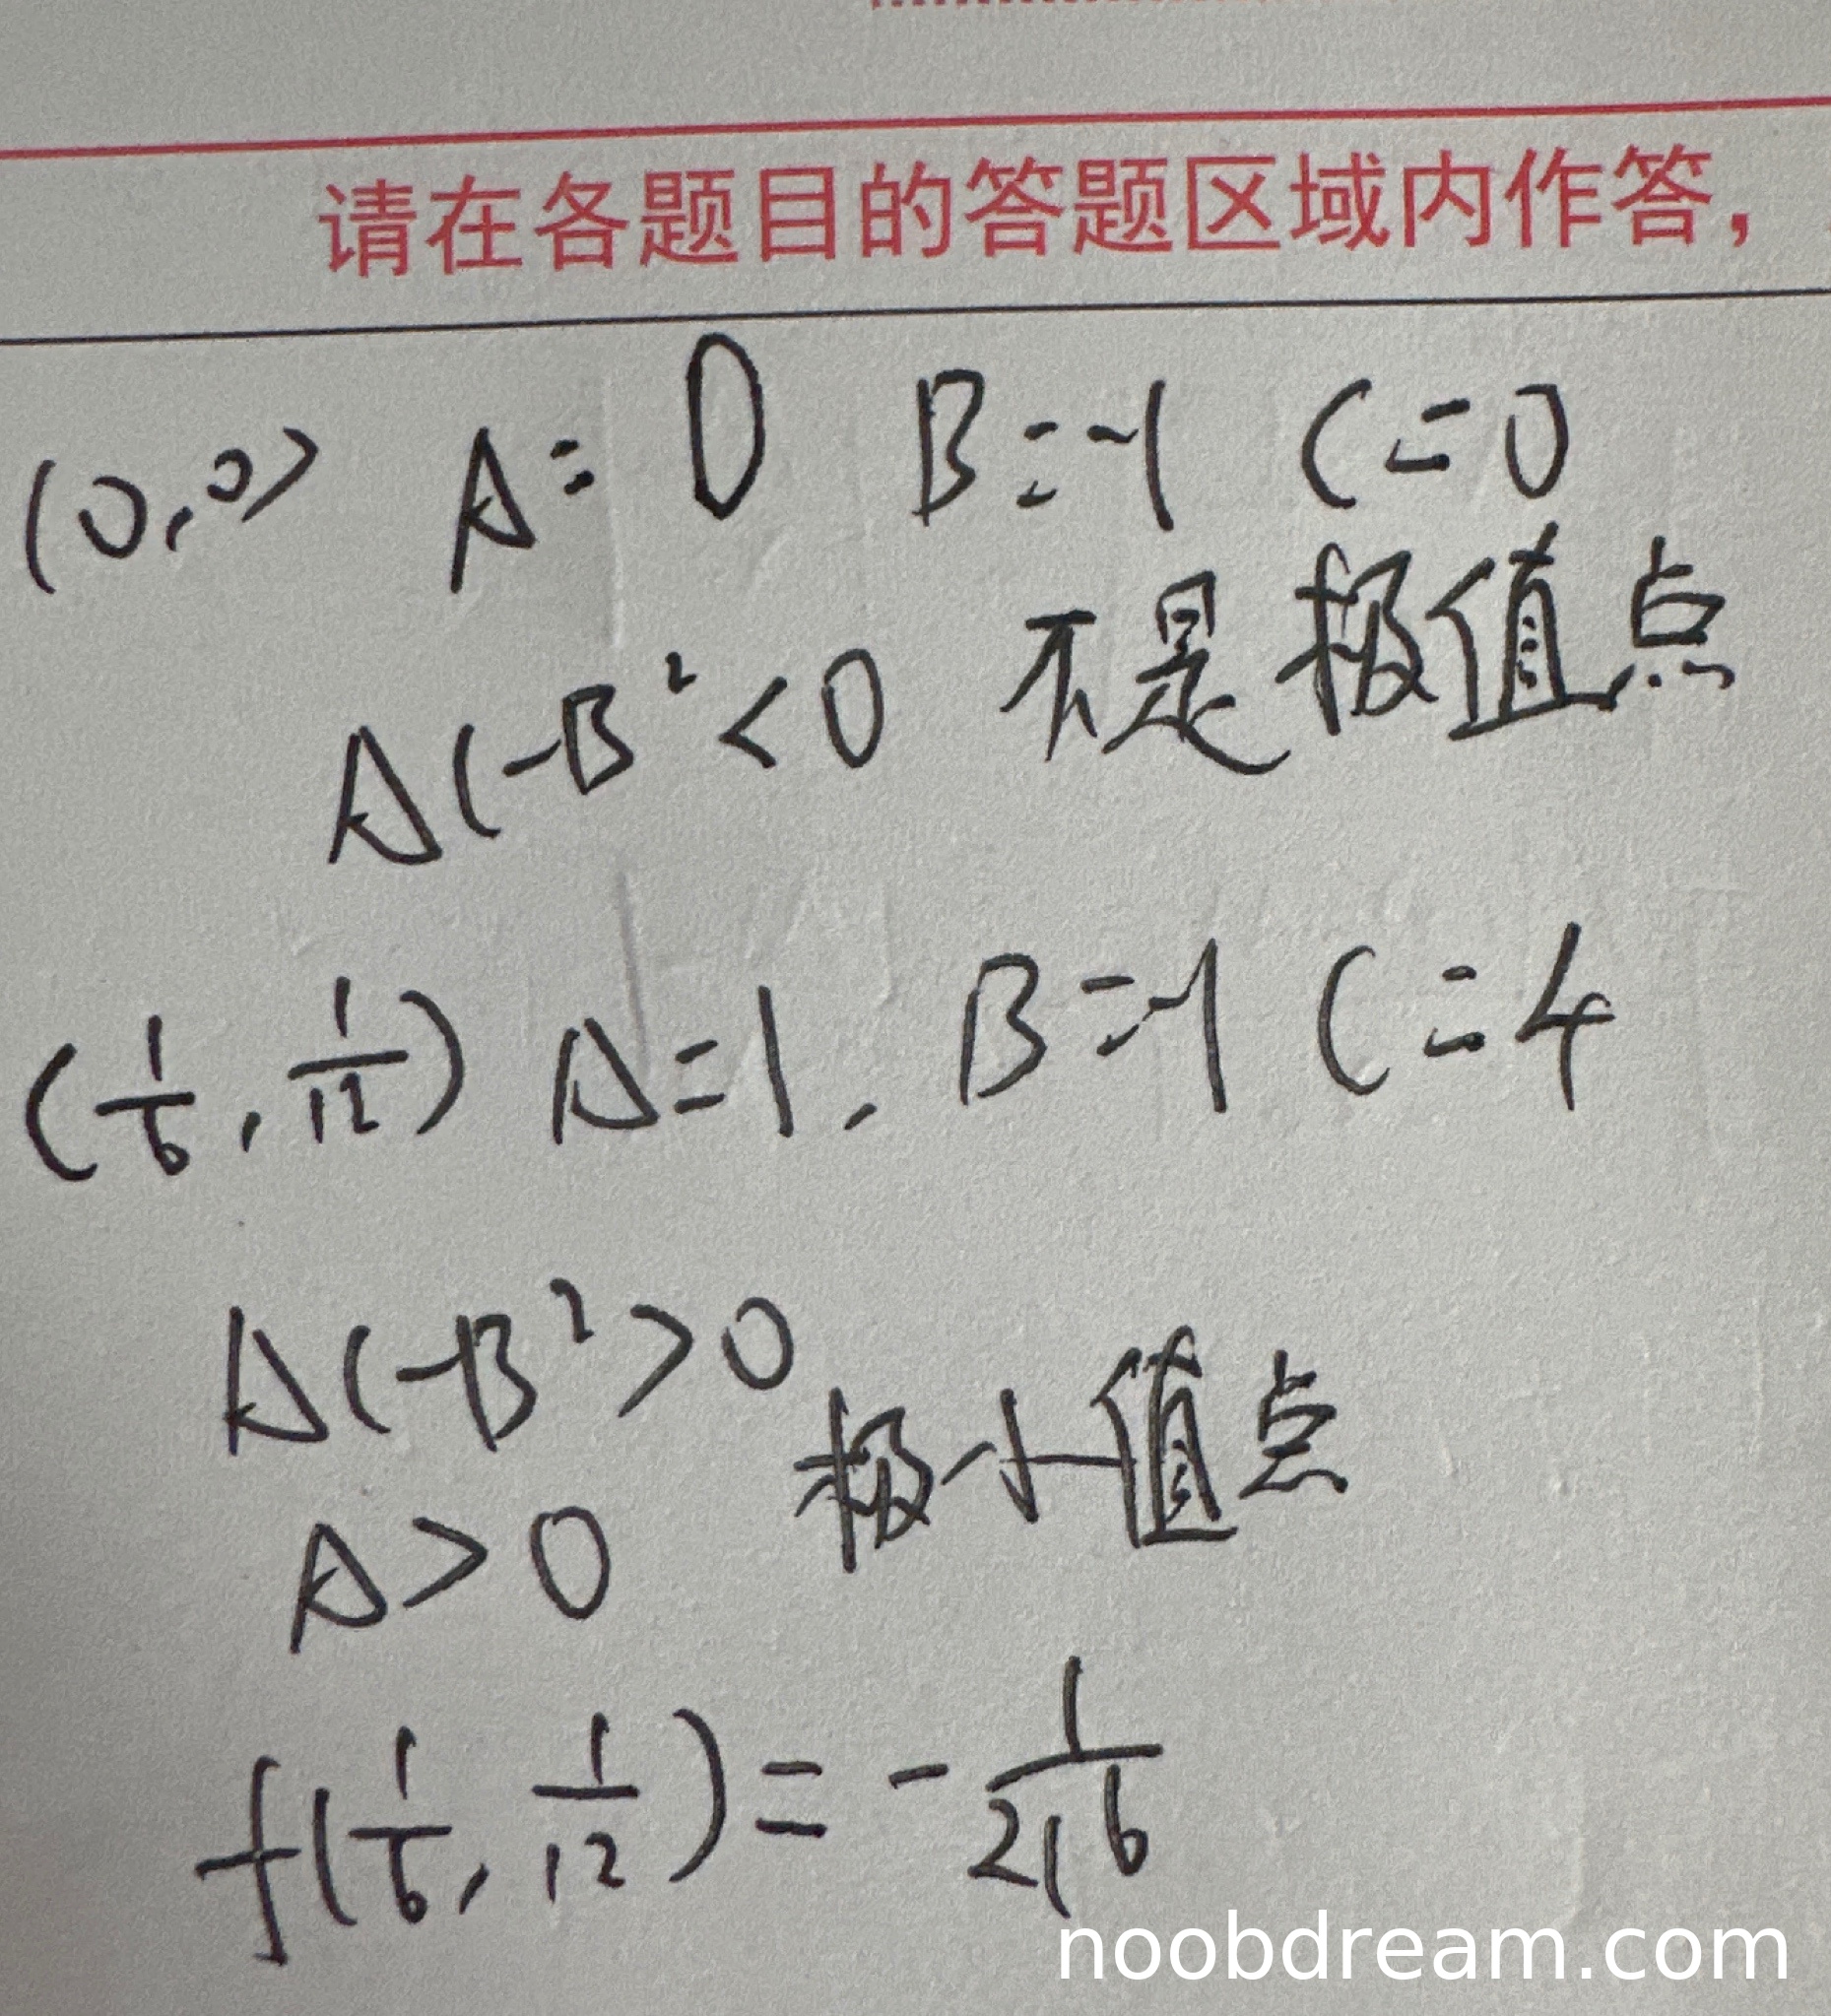 请在各题目的答题区域内作答，
(0,0) A=0 B=-1 C=0
AC-B²<0 不是极值点
(1/6, 1/12) A=1, B=-1 C=4
AC-B²>0
A>0 极小值点
f(1/6, 1/12)=-1/216
noobdream.com